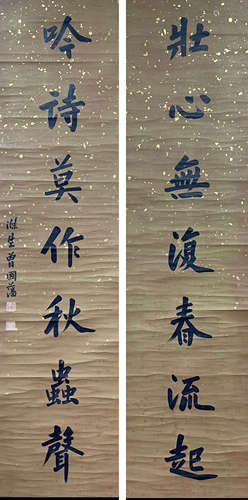 壯心無復春流起
吟诗莫作秋蟲聲
滌生曾國藩